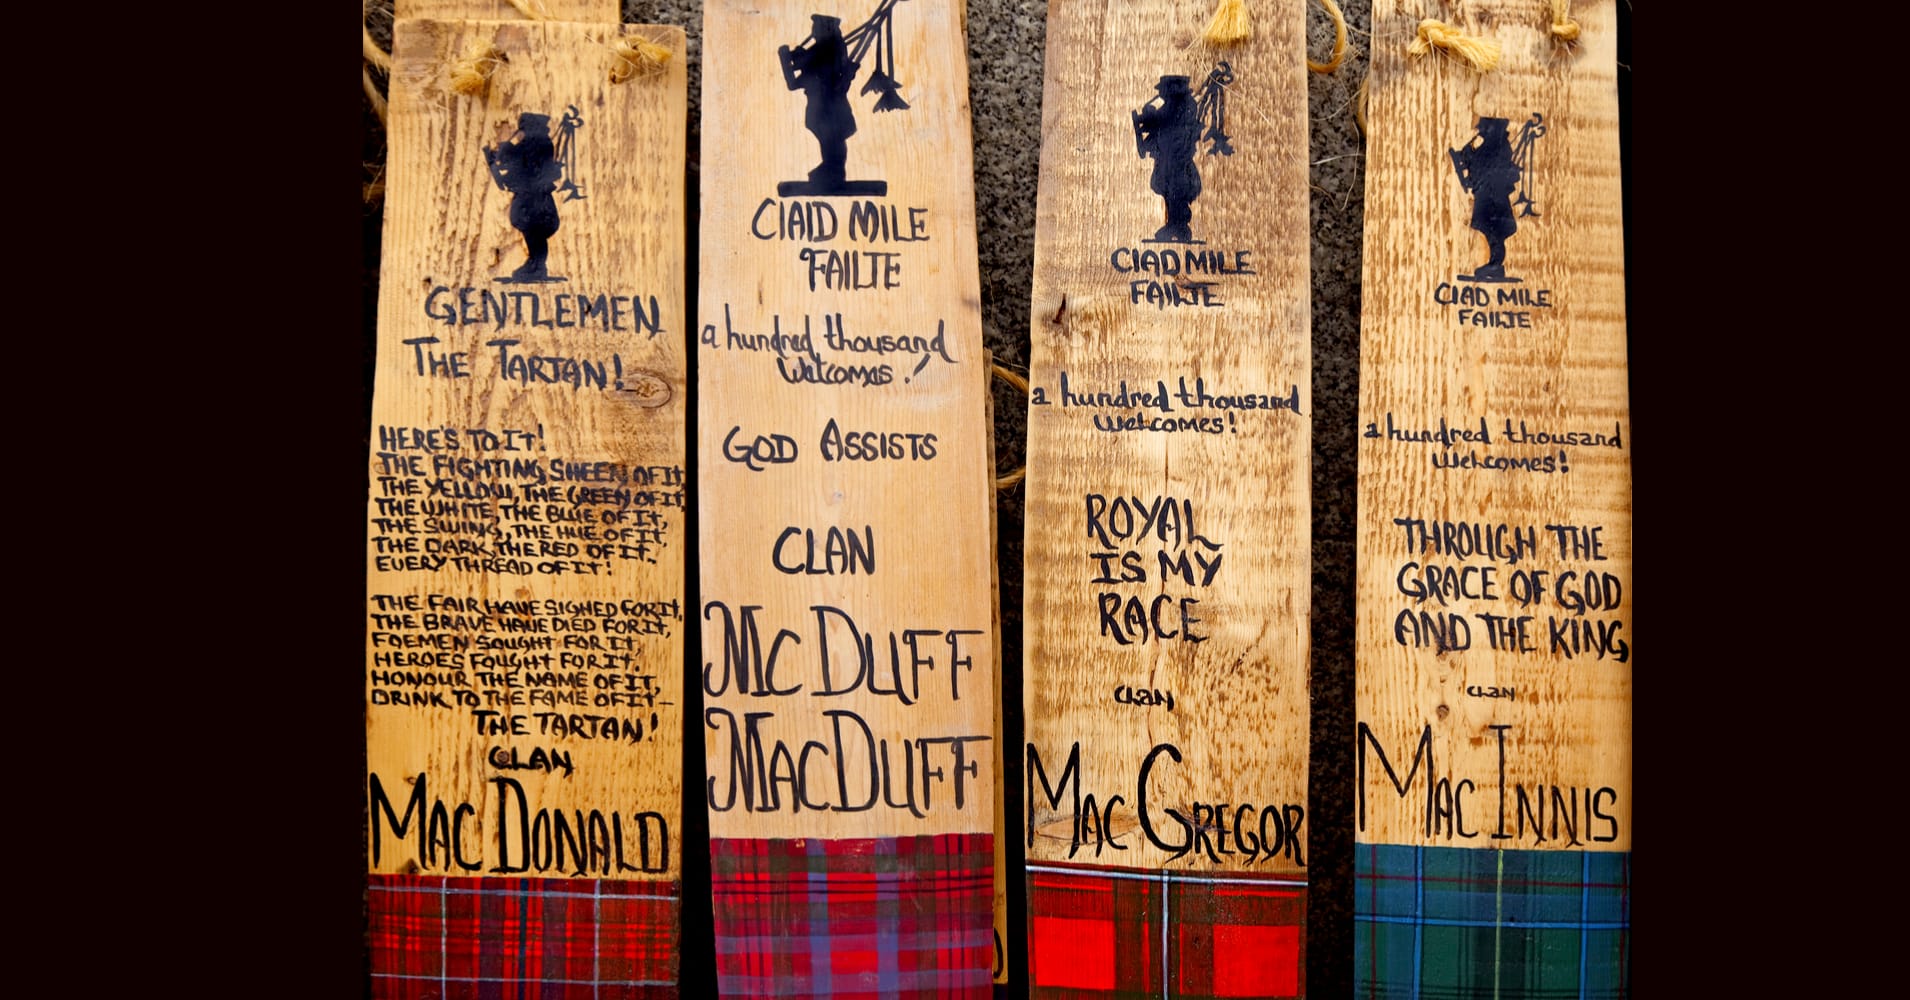 GENTLEMEN
THE TARTAN!
HERE'S TO It!
THE FIGHTING SHEEN OF It
THE YELLOW, THE GREEN OF It
THE WHITE, THE BLUE OF It,
THE SWING, THE HUE OF It,
THE DARK, THE RED OF It.
EVERY THREAD OF It!
THE FAIR HAVE SIGHED FOR It,
THE BRAVE HAVE DIED FOR It,
FOEMEN SOUGHT FOR It,
HEROES FOUGHT FOR It.
HONOUR THE NAME OF IT,
DRINK TO THE FAME OF It-
THE TARTAN!
CLAN
MAC DONALD
CIAID MILE
FAILTE
a hundred thousand
Welcomes!
GOD ASSISTS
CLAN
MC DUFF
MACDUFF
CIAD MILE
FAILTE
a hundred thousand
Welcomes!
ROYAL
IS MY
RACE
CLAN
MAC GREGOR
CIAD MILE
FAILTE
a hundred thousand
Welcomes!
THROUGH THE
GRACE OF GOD
AND THE KING
CLAN
MAC INNIS